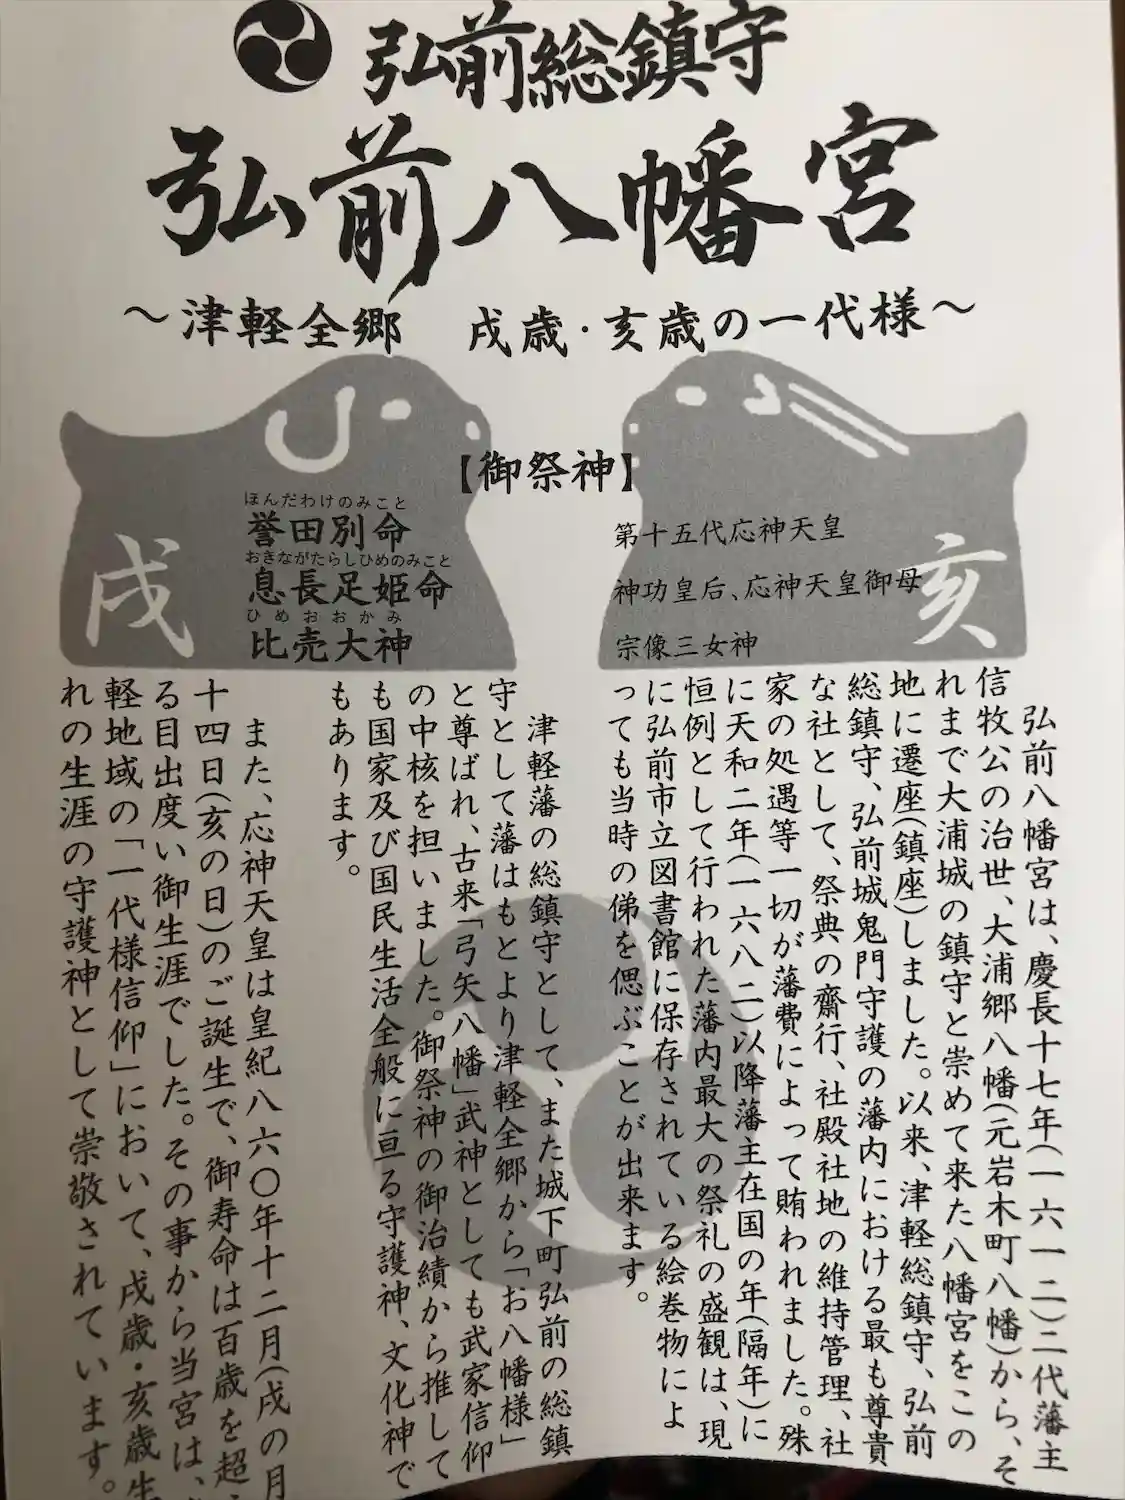 弘前総鎮守
弘前八幡宮
～津軽全郷　戌歳・亥歳の一代様～
【御祭神】
ほんだわけのみこと
誉田別命
第十五代応神天皇
おきながたらしひめのみこと
息長足姫命
神功皇后、応神天皇御母
ひめおおかみ
比売大神
宗像三女神
戌
亥
弘前八幡宮は、慶長十七年(一六一二)二代藩主
信牧公の治世、大浦郷八幡(元岩木町八幡)から、そ
れまで大浦城の鎮守と崇めて来た八幡宮をこの
地に遷座(鎮座)しました。以来、津軽総鎮守、弘前
総鎮守、弘前城鬼門守護の藩内における最も尊貴
な社として、祭典の齋行、社殿社地の維持管理、社
家の処遇等一切が藩費によって賄われました。殊
に天和二年(一六八二)以降藩主在国の年(隔年)に
恒例として行われた藩内最大の祭礼の盛観は、現
に弘前市立図書館に保存されている絵巻物によ
っても当時の俤を偲ぶことが出来ます。
津軽藩の総鎮守として、また城下町弘前の総鎮
守として藩はもとより津軽全郷から「お八幡様」
と尊ばれ、古来「弓矢八幡」武神としても武家信仰
の中核を担いました。御祭神の御治績から推して
も国家及び国民生活全般に亘る守護神、文化神で
もあります。
また、応神天皇は皇紀八六〇年十二月(戌の月
十四日(亥の日)のご誕生で、御寿命は百歳を超
る目出度い御生涯でした。その事から当宮は、
軽地域の「一代様信仰」において、戌歳・亥歳生
れの生涯の守護神として崇敬されています。